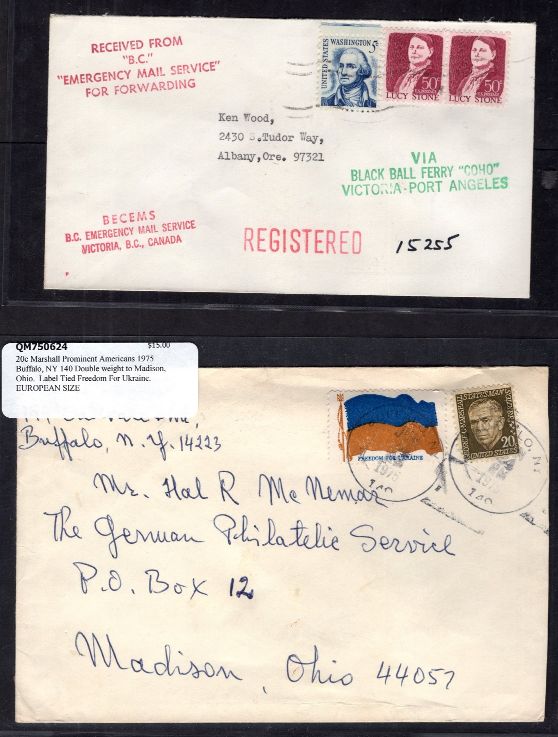 RECEIVED FROM
"B.C."
"EMERGENCY MAIL SERVICE"
FOR FORWARDING
UNITED STATES
WASHINGTON 5c
50c
U.S. POSTAGE
LUCY STONE
50c
U.S. POSTAGE
LUCY STONE
Ken Wood,
2430 S.Tudor Way,
Albany,Ore. 97321
VIA
BLACK BALL FERRY "COHO"
VICTORIA-PORT ANGELES
BECEMS
B.C. EMERGENCY MAIL SERVICE
VICTORIA, B.C., CANADA
REGISTERED
15255
QM750624 $15.00
20c Marshall Prominent Americans 1975
Buffalo, NY 140 Double weight to Madison,
Ohio. Label Tied Freedom For Ukraine.
EUROPEAN SIZE
Buffalo, N.Y. 14223
FREEDOM FOR UKRAINE
PM
1975
140
20c
UNITED STATES
140
Mr. Hal R McNemar
The German Philatelic Service
P.O. Box 12
Madison, Ohio 44057